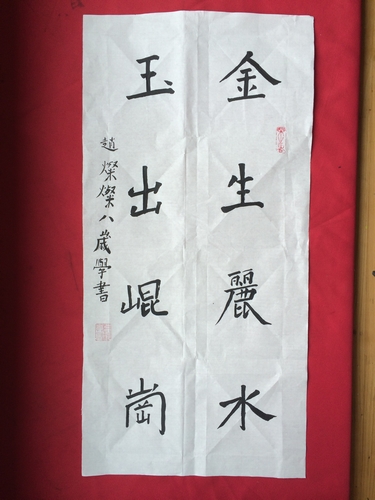 金生麗水
玉出崐崗
趙燦燦八歲學書